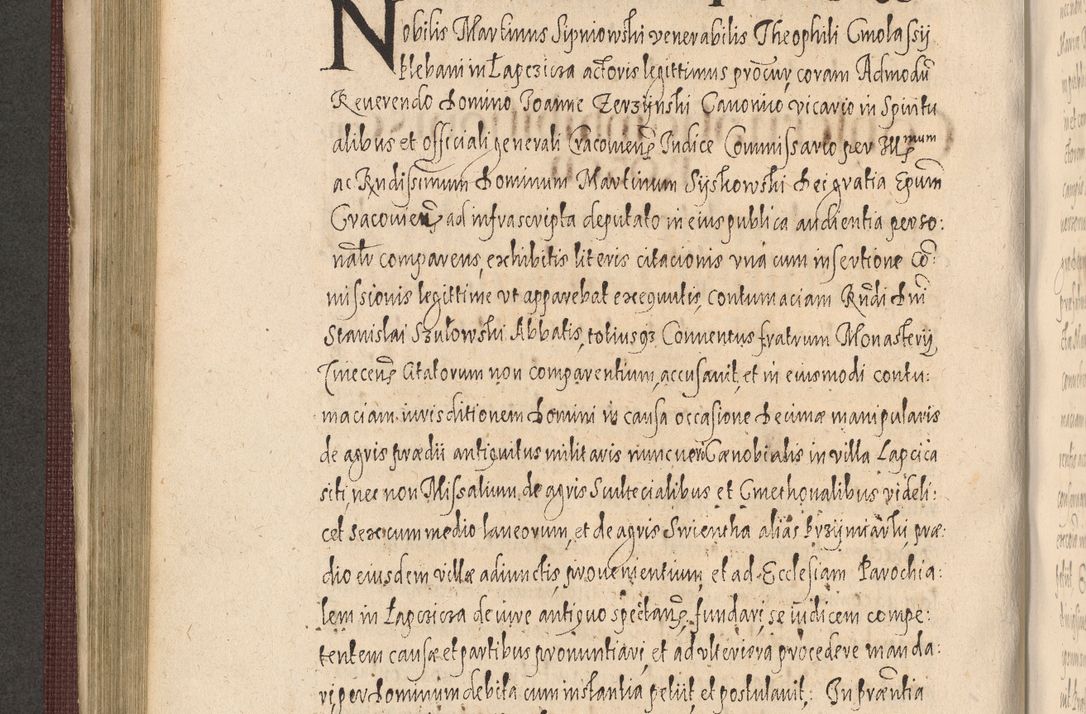 Nobilis Martinus Sipniowski venerabilis Theophili Cmolassij
Plebani in Łapczicza actoris legittimus procur, coram Admodū
Reuerendo Domino Joanne Zerzijnski Canonico, vicario in Spiritu
alibus et officiali generali Cracouien, Judice Commissario per Illmum
ac Rndissimum Dominum Martinum Sijskowski Dei gratia Epum
Cracouien, ad infrascripta deputato in eius publica audientia perso:
nalr comparens, exhibitis literis citacionis vna cum insertione Co:
missionis legittime vt apparebat exequutis, contumaciam Rndi Dni
Stanislai Szułowski Abbatis, totiusq3 Conuentus fratrum Monasterij
Tinecens Citatorum non comparentium, accusauit, et in eiusmodi contu:
maciam iurisditionem Domini in causa occasione Decimæ manipularis
de agris prædii antiquitus militaris nunc vero Cænobialis in villa Lapcica
siti, nec non Missalium, de agris Scultecialibus et Cmethonalibus videli:
cet sex cum medio laneorum, et de agris Swientha alias Przijmiarki, præ:
dio eiusdem villæ adiunctis, prouenientium, et ad Ecclesiam Parochia:
lem in Łapczicza de iure antiquo spectans, fundari, se iudicem compe:
tentem causæ et partibus pronuntiari et ad vlteriora procedere manda:
ri per Dominum debita cum instantia petiit, et postulauit: In præntia